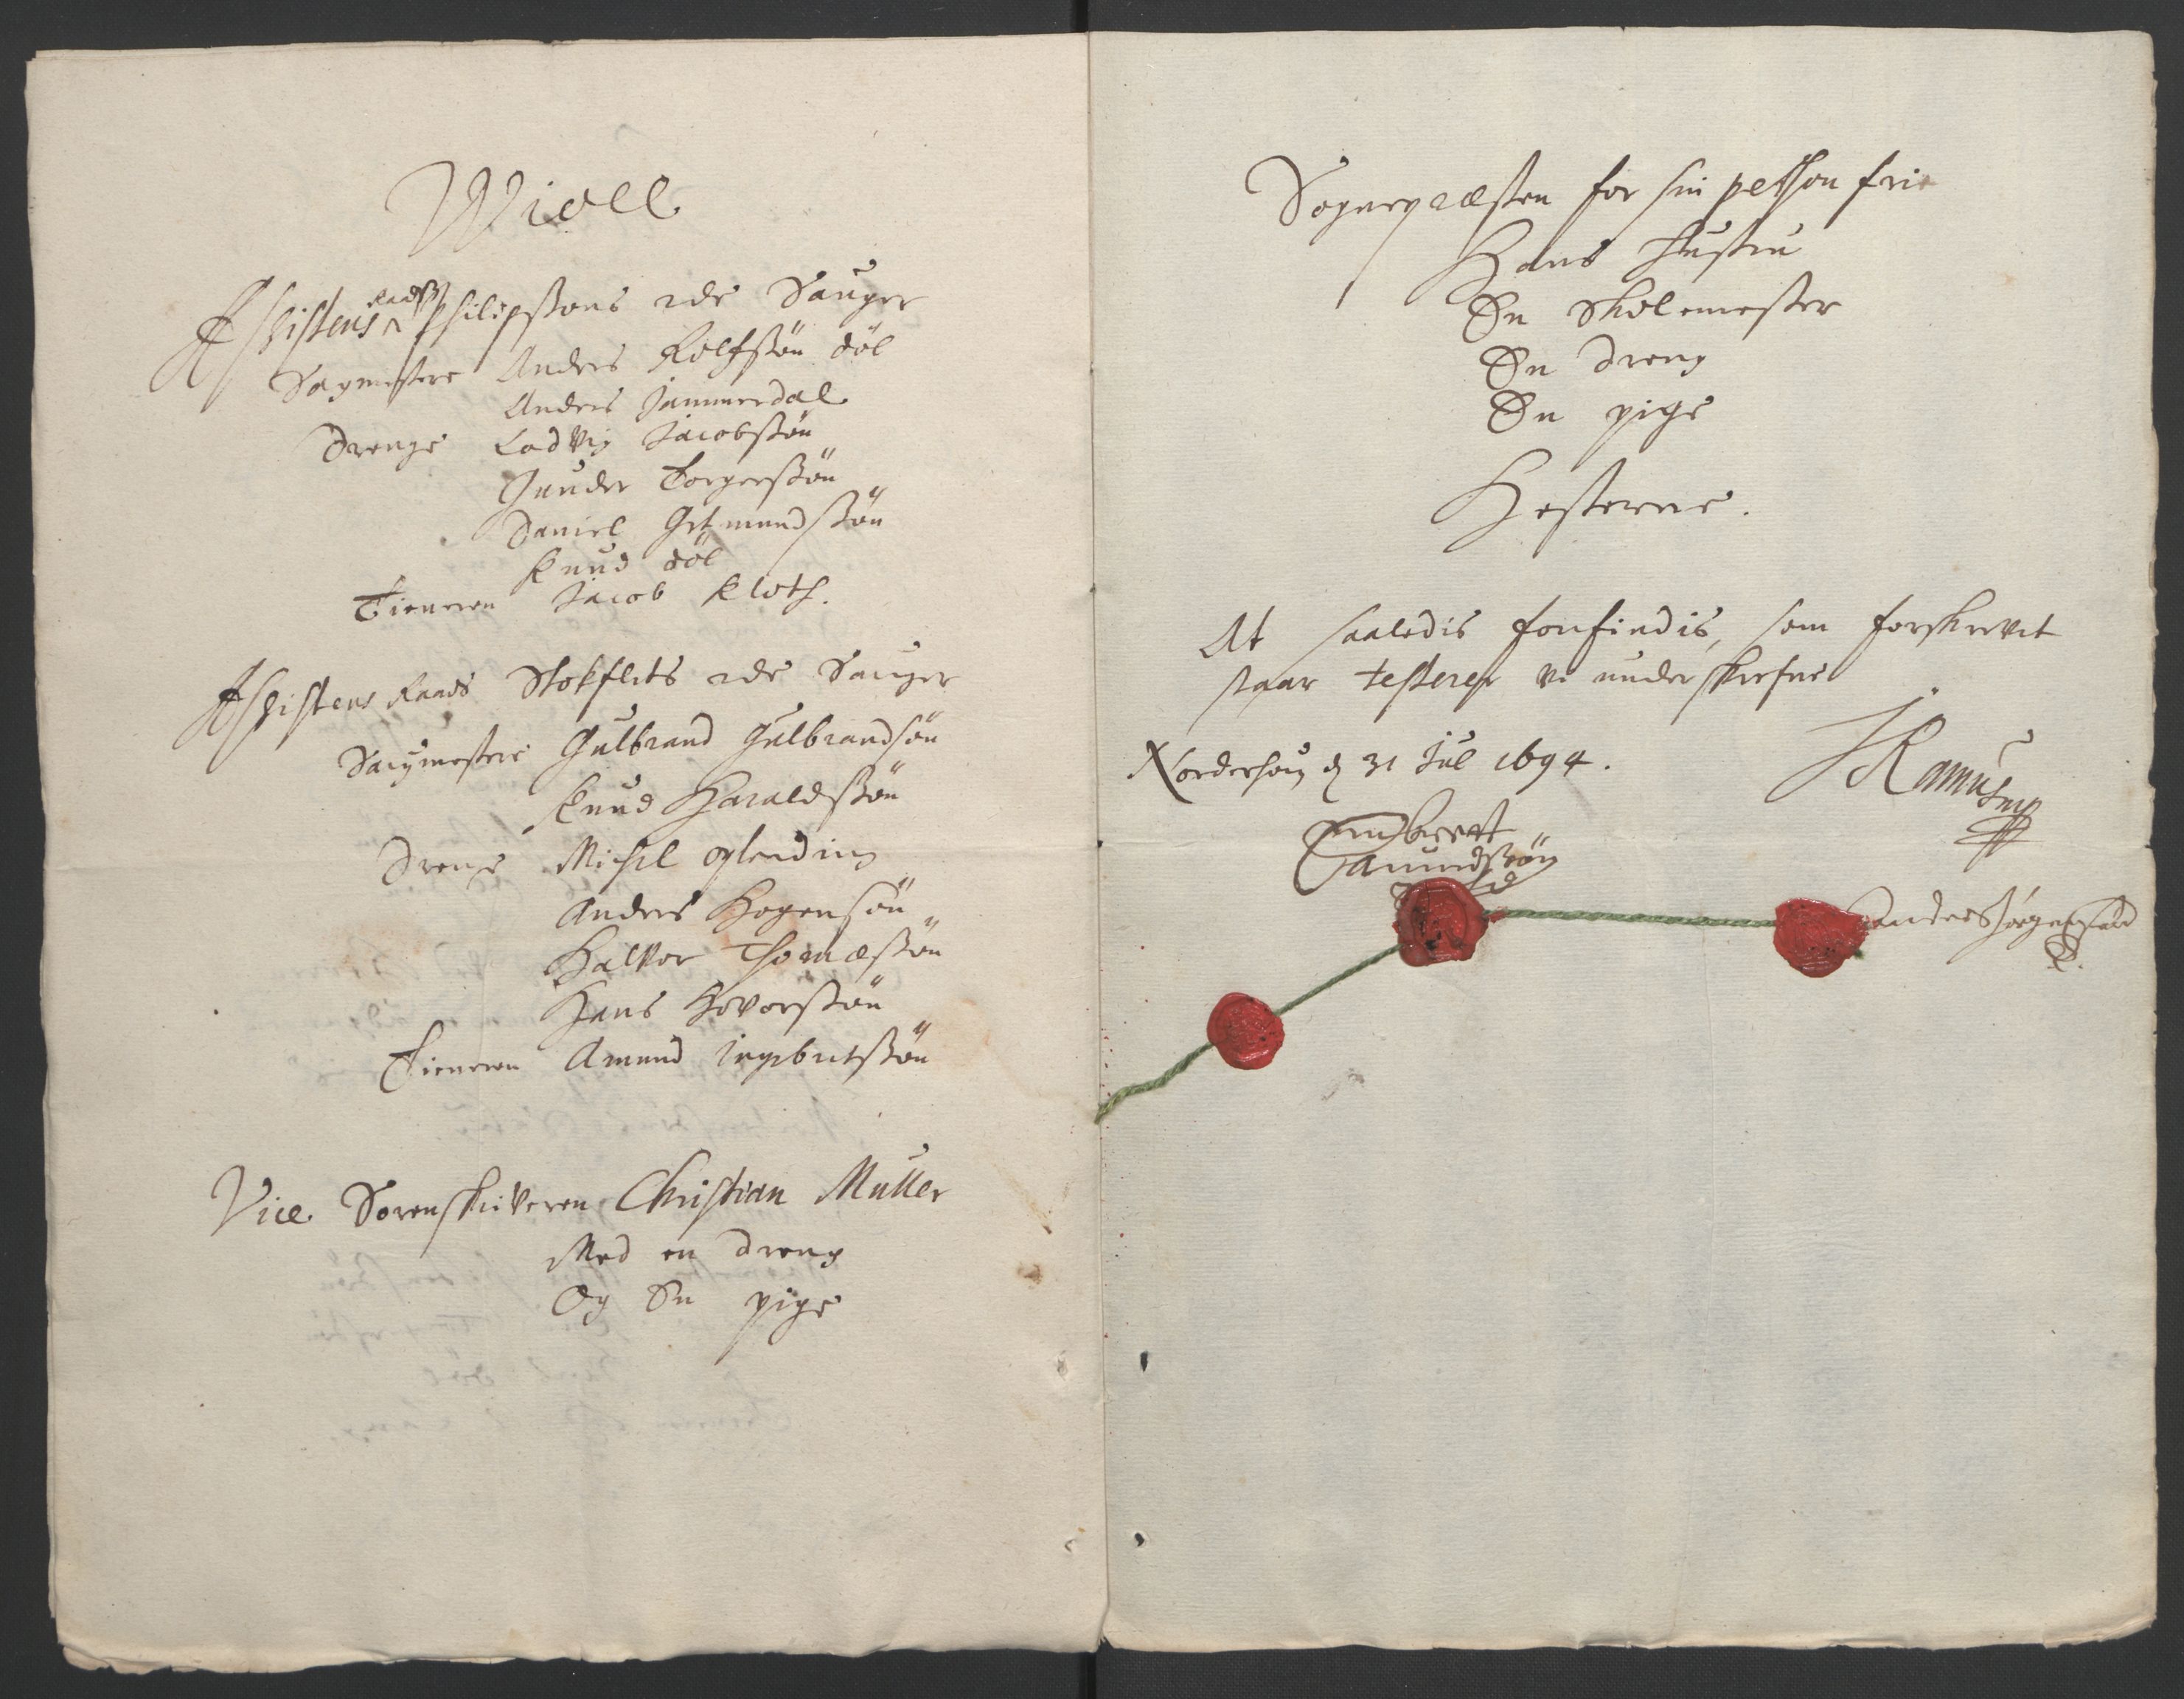 Wiell
Assistens Raads Philipssøns 2de Sauger
Saugmestere Anders Rolfssøn döl
Anders Jammerdal
Drenge Lodvig Jacobssön
Gunder Torgerssön
Daniel Gutmundssön
Knud döl
Tieneren Jacob Kloth.
Assistens Raads Stokflets 2de Sauger
Saugmestere Gulbrand Gulbrandsön
Knud Haraldssön
Drenge Michel oplending
Anders Hogensön
Halvor Thomæssön
Hans Hovorssön
Tieneren Amund Ingebretssön
Vice Sorenskriveren Christian Muller
Med en dreng
Og En pige
Sognepræsten for sin person frie
Hans Hustru
En Skolemester
En dreng
En pige
Hesterne.
At saaledis forfindis, som forskrevit
staar testerer vi underskrefne
Norderhoug d 31 Jul 1694.
JRamus
Engebrett
Amundssön
Anders Jörgens